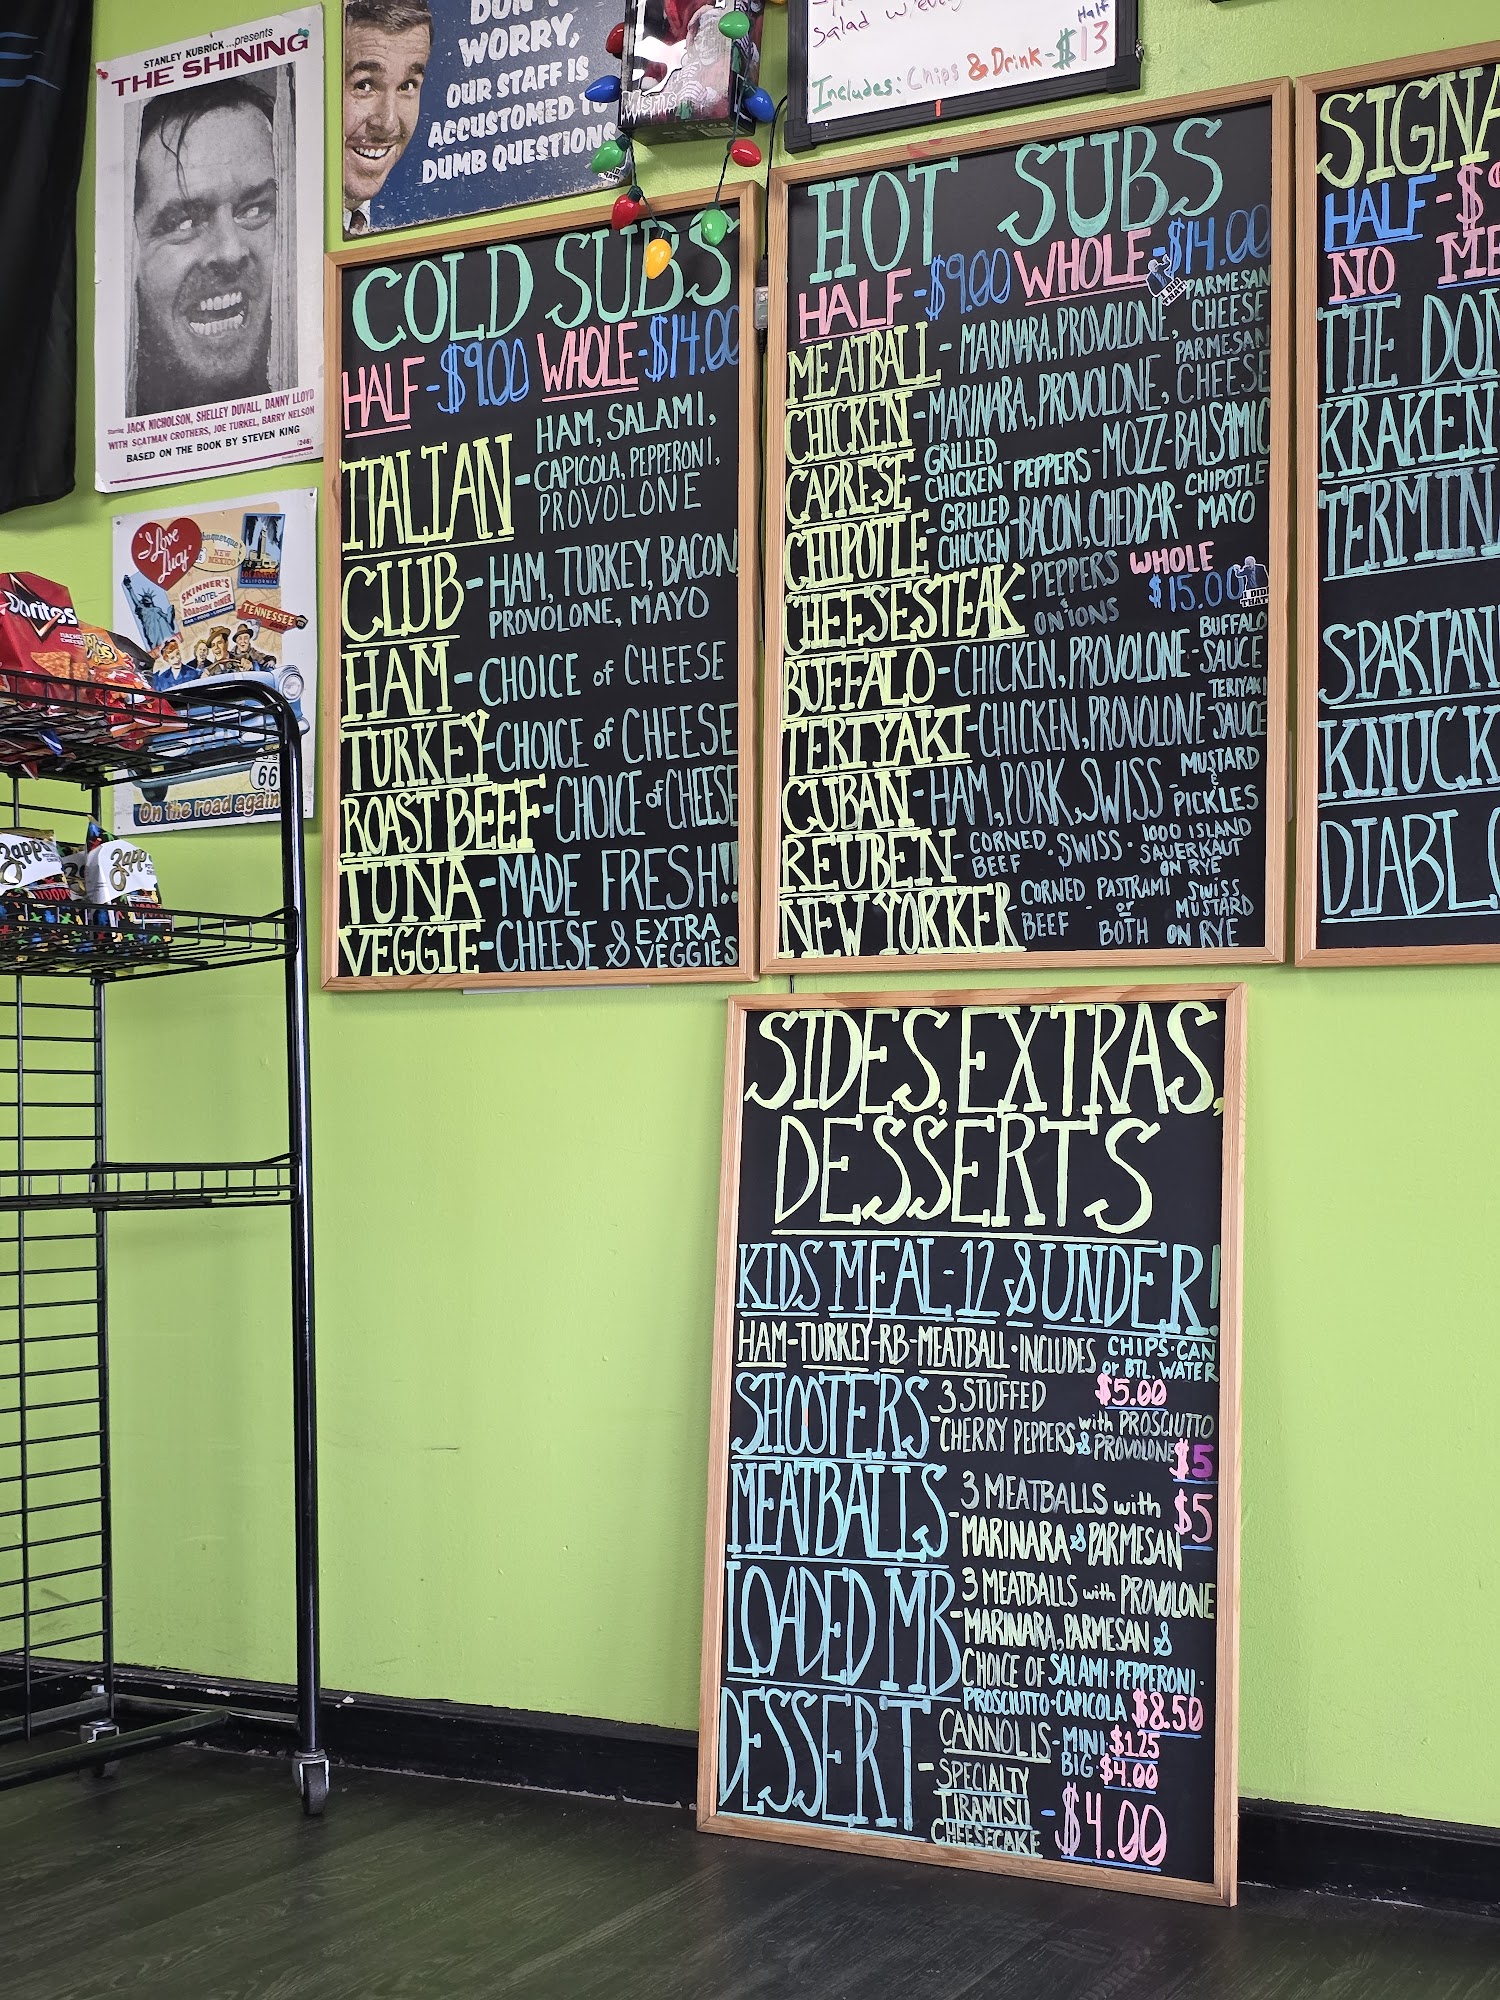 STANLEY KUBRICK ...presents
THE SHINING
Starring JACK NICHOLSON, SHELLEY DUVALL, DANNY LLOYD
WITH SCATMAN CROTHERS, JOE TURKEL, BARRY NELSON
BASED ON THE BOOK BY STEVEN KING
(246)
DON'T
WORRY,
OUR STAFF IS
ACCUSTOMED TO
DUMB QUESTIONS
Misfits
Salad w/every
Half
Includes: Chips & Drink - $13
I Love
Lucy
NEW
MEXICO
LOS ANGELES
CALIFORNIA
SKINNER'S
MOTEL
ROADSIDE DINER
TENNESSEE
66
On the road again
Doritos
NACHO
Zapp's
Zapp
COLD SUBS
HALF - $9.00 WHOLE - $14.00
ITALIAN - HAM, SALAMI,
CAPICOLA, PEPPERONI,
PROVOLONE
CLUB - HAM, TURKEY, BACON,
PROVOLONE, MAYO
HAM - CHOICE of CHEESE
TURKEY - CHOICE of CHEESE
ROAST BEEF - CHOICE of CHEESE
TUNA - MADE FRESH!!
VEGGIE - CHEESE & EXTRA
VEGGIES
HOT SUBS
HALF - $9.00 WHOLE - $14.00
I DID THAT!
MEATBALL - MARINARA, PROVOLONE, PARMESAN CHEESE
CHICKEN - MARINARA, PROVOLONE, PARMESAN CHEESE
CAPRESE - GRILLED CHICKEN - PEPPERS - MOZZ - BALSAMIC
CHIPOTLE - GRILLED CHICKEN - BACON, CHEDDAR - CHIPOTLE MAYO
CHEESESTEAK - PEPPERS & ONIONS WHOLE $15.00
I DID THAT!
BUFFALO - CHICKEN, PROVOLONE - BUFFALO SAUCE
TERIYAKI - CHICKEN, PROVOLONE - TERIYAKI SAUCE
CUBAN - HAM, PORK, SWISS - MUSTARD & PICKLES
REUBEN - CORNED BEEF · SWISS · 1000 ISLAND SAUERKAUT ON RYE
NEW YORKER - CORNED BEEF - PASTRAMI or BOTH SWISS MUSTARD ON RYE
SIGNA
HALF - $9
NO ME
THE DON
KRAKEN
TERMIN
SPARTAN
KNUCK
DIABLO
SIDES, EXTRAS,
DESSERTS
KIDS MEAL - 12 & UNDER!
HAM - TURKEY - RB - MEATBALL · INCLUDES CHIPS · CAN
or BTL. WATER
$5.00
SHOOTERS - 3 STUFFED
CHERRY PEPPERS with PROSCIUTTO
& PROVOLONE $5
MEATBALLS - 3 MEATBALLS with
MARINARA & PARMESAN $5
LOADED MB - 3 MEATBALLS with PROVOLONE
MARINARA, PARMESAN &
CHOICE OF SALAMI · PEPPERONI ·
PROSCIUTTO · CAPICOLA $8.50
DESSERT - CANNOLIS - MINI · $1.25
BIG · $4.00
SPECIALTY
TIRAMISU - $4.00
CHEESECAKE